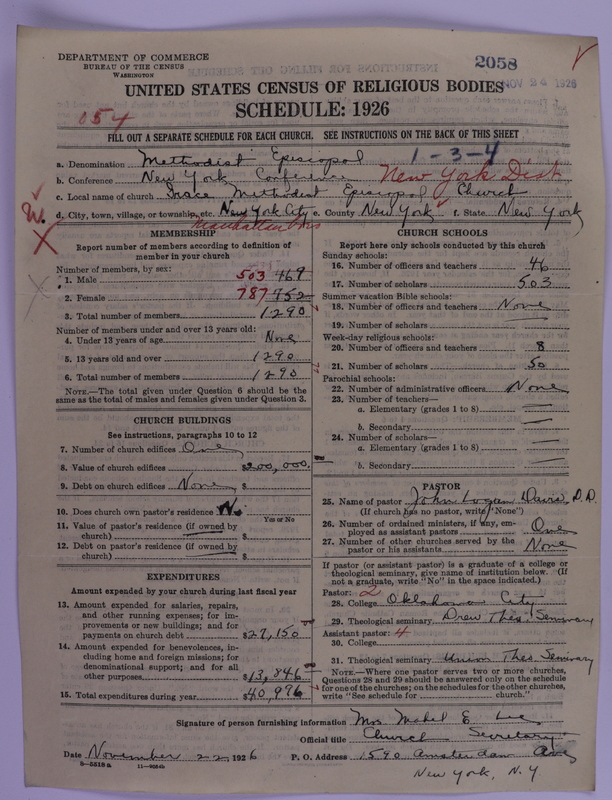 DEPARTMENT OF COMMERCE
BUREAU OF THE CENSUS
WASHINGTON
2058
NOV 24 1926
UNITED STATES CENSUS OF RELIGIOUS BODIES
SCHEDULE: 1926
054
FILL OUT A SEPARATE SCHEDULE FOR EACH CHURCH. SEE INSTRUCTIONS ON THE BACK OF THIS SHEET
1-3-4
a. Denomination Methodist Episcopal
b. Conference New York Conference New York Dist
c. Local name of church Grace Methodist Episcopal Church
d. City, town, village, or township, etc. New York City e. County New York f. State New York
W. X
Manhattan Boro
MEMBERSHIP
Report number of members according to definition of member in your church
Number of members, by sex:
1. Male 503 469
2. Female 787 752
3. Total number of members 1290
Number of members under and over 13 years old:
4. Under 13 years of age None
5. 13 years old and over 1290
6. Total number of members 1290
NOTE.—The total given under Question 6 should be the same as the total of males and females given under Question 3.
CHURCH BUILDINGS
See instructions, paragraphs 10 to 12
7. Number of church edifices One
8. Value of church edifices $200,000.
9. Debt on church edifices None $
10. Does church own pastor's residence? No
Yes or No
11. Value of pastor's residence (if owned by church) $
12. Debt on pastor's residence (if owned by church) $
EXPENDITURES
Amount expended by church during last fiscal year
13. Amount expended for salaries, repairs, and other running expenses; for improvements or new buildings; and for payments on church debt $27,150
14. Amount expended for benevolences, including home and foreign missions; for denominational support; and for all other purposes $13,846
15. Total expenditures during year $40,996
CHURCH SCHOOLS
Report here only schools conducted by this church
Sunday schools:
16. Number of officers and teachers 46
17. Number of scholars 503
Summer vacation Bible schools:
18. Number of officers and teachers None
19. Number of scholars
Week-day religious schools:
20. Number of officers and teachers 8
21. Number of scholars 50
Parochial schools:
22. Number of administrative officers None
23. Number of teachers—
a. Elementary (grades 1 to 8)
b. Secondary
24. Number of scholars—
a. Elementary (grades 1 to 8)
b. Secondary
PASTOR
25. Name of pastor John Logan Davis, D.D.
(If church has no pastor, write "None")
26. Number of ordained ministers, if any, employed as assistant pastors One
27. Number of other churches served by the pastor or his assistants None
If pastor (or assistant pastor) is a graduate of a college or theological seminary, give name of institution below. (If not a graduate, write "No" in the space indicated.)
Pastor: 2
28. College Oklahoma City
29. Theological seminary Drew Theo. Seminary
Assistant pastor: 4
30. College
31. Theological seminary Union Theo. Seminary
NOTE.—Where one pastor serves two or more churches, Questions 28 and 29 should be answered only on the schedule for one of the churches; on the schedules for the other churches, write "See schedule for church."
Signature of person furnishing information Mrs. Mabel E. Lee
Official title Church Secretary
Date November 22, 1926 P. O. Address 1590 Amsterdam Ave
New York, N.Y
8—5515 a 11—9054b